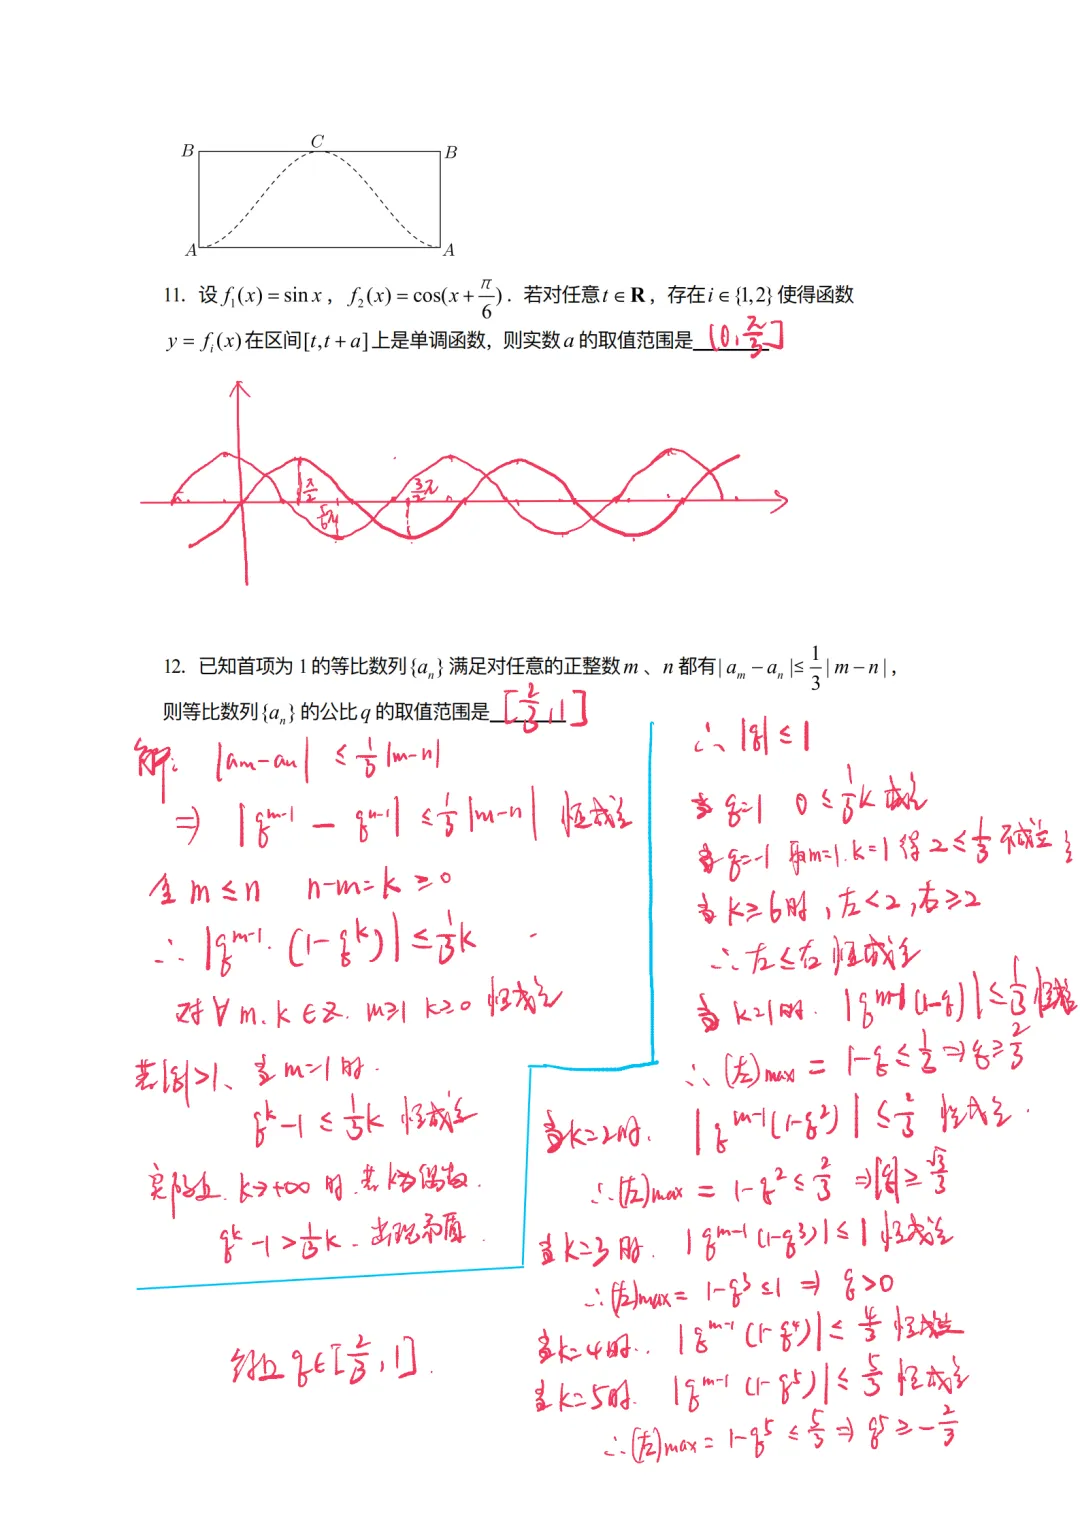 B
C
B
A
A
11. 设 f₁(x) = sin x，f₂(x) = cos(x + π/6)．若对任意 t ∈ R，存在 i ∈ {1,2} 使得函数
y = fᵢ(x) 在区间[t, t + a]上是单调函数，则实数 a 的取值范围是 (0, 2π/3]
π/2
5/6π
3/2π
12. 已知首项为 1 的等比数列{aₙ}满足对任意的正整数 m、n 都有| aₘ − aₙ |≤ 1/3 | m − n |，
则等比数列{aₙ}的公比 q 的取值范围是 [2/3, 1]
解: |am-an| ≤ 1/3 |m-n|
⇒ |q^(m-1) - q^(n-1)| ≤ 1/3 |m-n| 恒成立
令 m ≤ n n-m=k ≥ 0
∴ |q^(m-1)·(1-q^k)| ≤ 1/3 k
对 ∀ m, k ∈ Z. m≥1 k≥0 恒成立
若|q|>1、当 m=1 时.
q^k -1 ≤ 1/3 k 恒成立
实际上 k→+∞ 时. 若 k为偶数.
q^k -1 > 1/3 k . 出现矛盾.
∴ |q| ≤ 1
当 q=1 0 ≤ 1/3 k 成立
当 q=-1 取m=1. k=1 得 2 ≤ 1/3 不成立
当 k≥6时, 左<2, 右≥2
∴ 左≤右 恒成立
当 k=1时. |q^(m-1)(1-q)| ≤ 1/3 恒成立
∴ (左)max = 1-q ≤ 1/3 ⇒ q ≥ 2/3
当k=2时. |q^(m-1)(1-q²)| ≤ 2/3 恒成立.
∴ (左)max = 1-q² ≤ 2/3 ⇒ |q| ≥ √3/3
当k=3时. |q^(m-1)(1-q³)| ≤ 1 恒成立
∴ (左)max = 1-q³ ≤ 1 ⇒ q>0
当k=4时.. |q^(m-1)(1-q⁴)| ≤ 4/3 恒成立
当k=5时. |q^(m-1)(1-q⁵)| ≤ 5/3 恒成立
∴ (左)max = 1-q⁵ ≤ 5/3 ⇒ q⁵ ≥ -2/3
综上 q∈[2/3, 1].